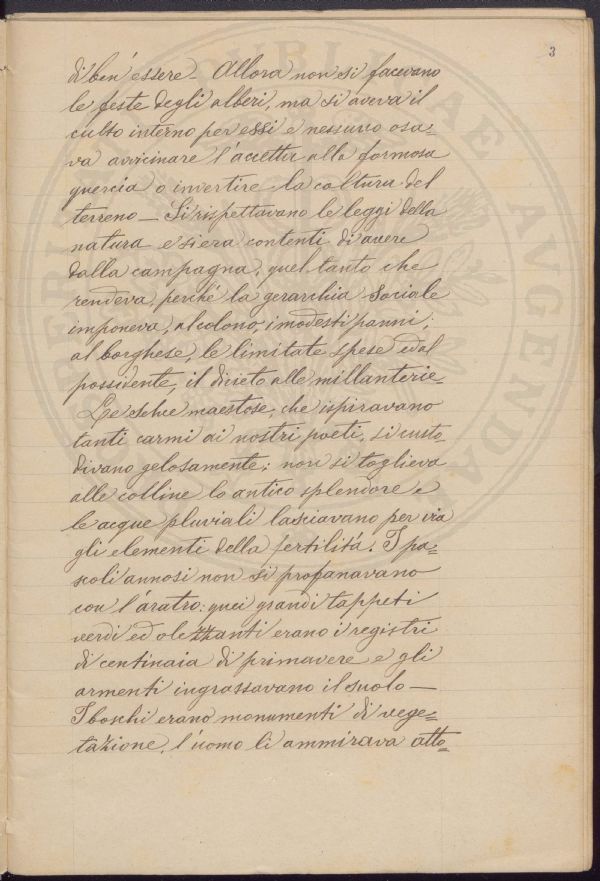 3
di ben' essere - Allora non si facevano
le feste degli alberi, ma si aveva il
culto interno per essi e nessuno osa=
va avvicinare l'accetta alla formosa
quercia o invertire la coltura del
terreno — Si rispettavano le leggi della
natura e si era contenti di avere
dalla campagna, quel tanto che
rendeva, perché la gerarchia sociale
imponeva, al colono, i modesti panni;
al borghese, le limitate spese ed al
possidente, il divieto alle millanterie.
Le selve maestose, che ispiravano
tanti carmi ai nostri poeti, si custo
divano gelosamente: non si toglieva
alle colline lo antico splendore e
le acque pluviali lasciavano per via
gli elementi della fertilità. I pa=
scoli annosi non si profanavano
con l'aratro: quei grandi tappeti
verdi ed olezzanti erano i registri
di centinaia di primavere e gli
armenti ingrassavano il suolo —
I boschi erano monumenti di vege=
tazione, l'uomo li ammirava atto=